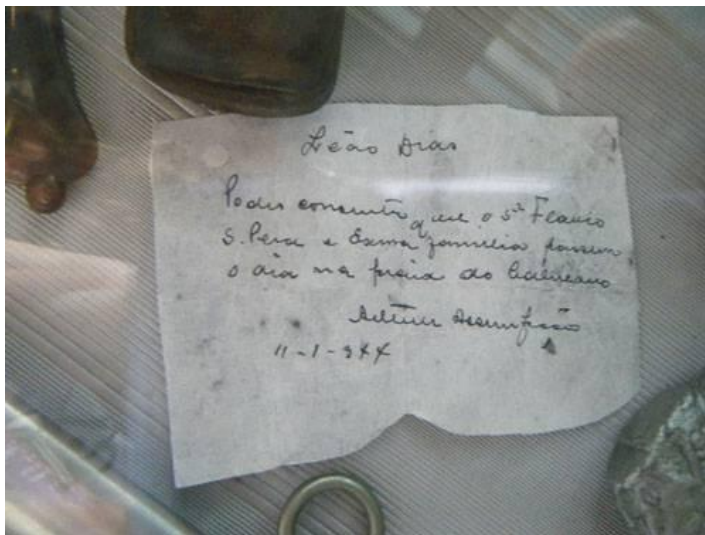 Leão Dias
Podes consentir que o Sr Flavio
S. Pera e Exma familia passem
o dia na praia do balneario
Assumpção
11-1-944